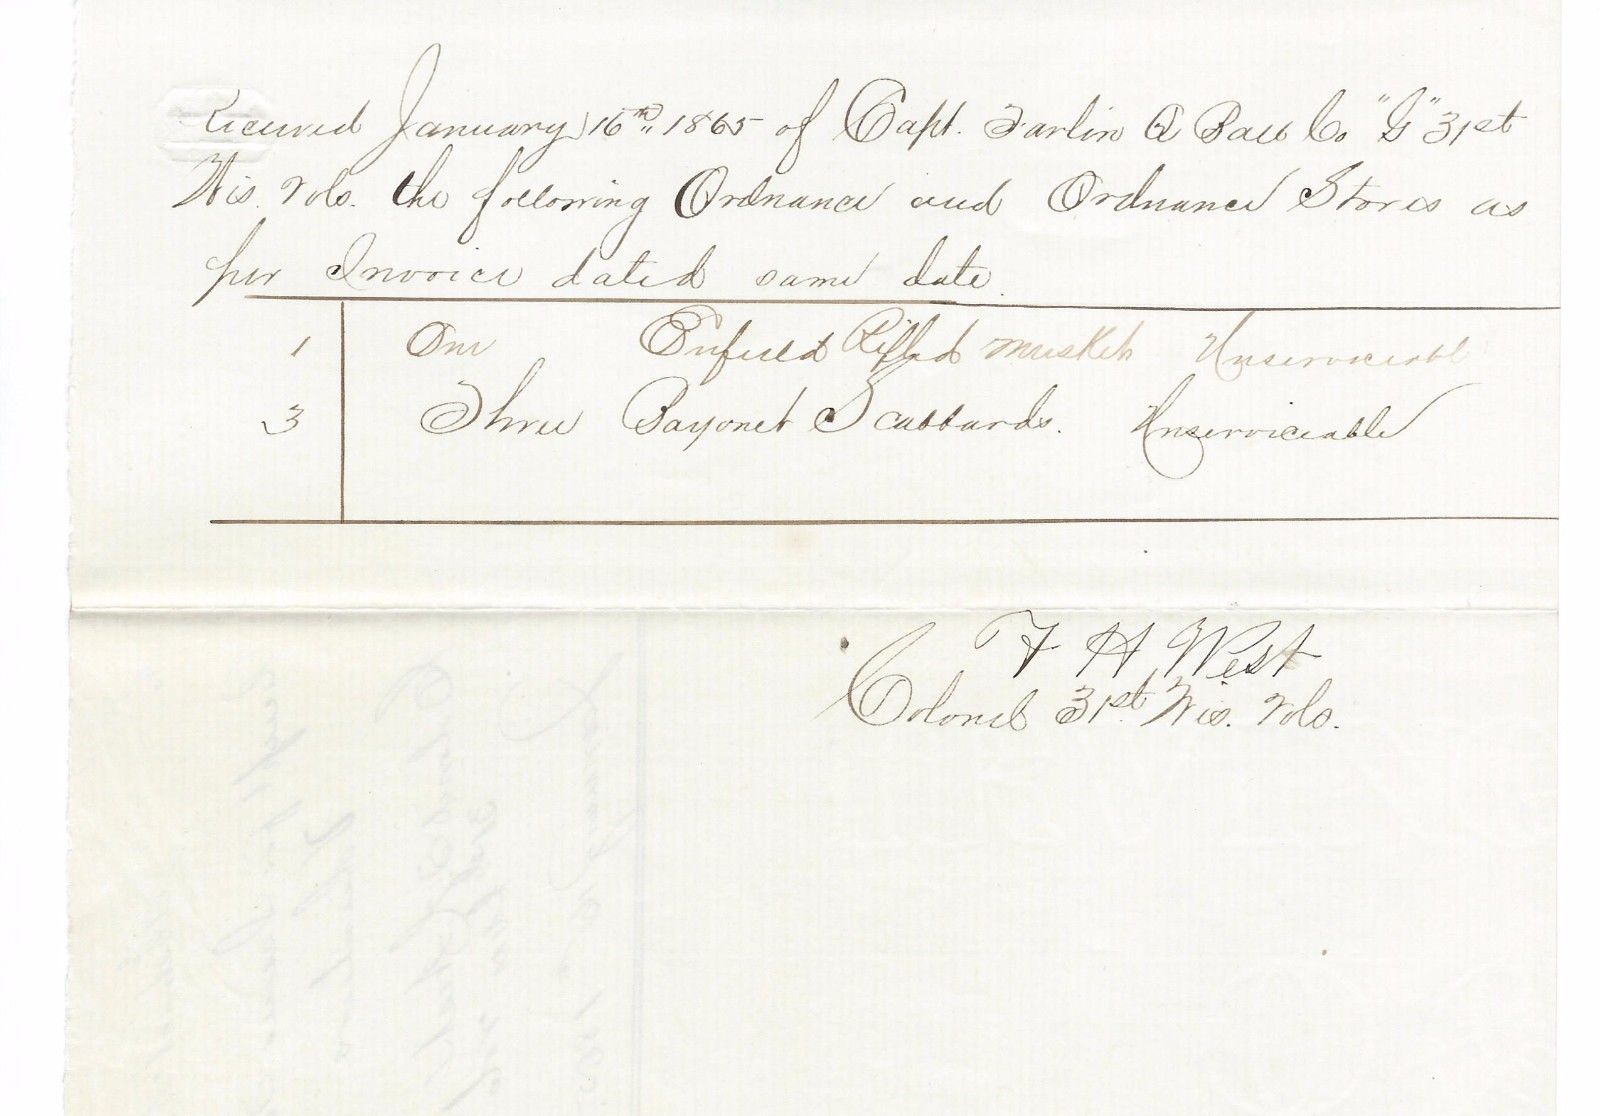 Received January 16th 1865 of Capt. Farlin Q Ball Co "G" 31st
Wis. Vols. the following Ordnance and Ordnance Stores as
per Invoice dated same date.
1 One Enfield Rifled Muskets Unserviceable
3 Three Bayonet Scabbards. Unserviceable
F H West
Colonel 31st Wis. Vols.